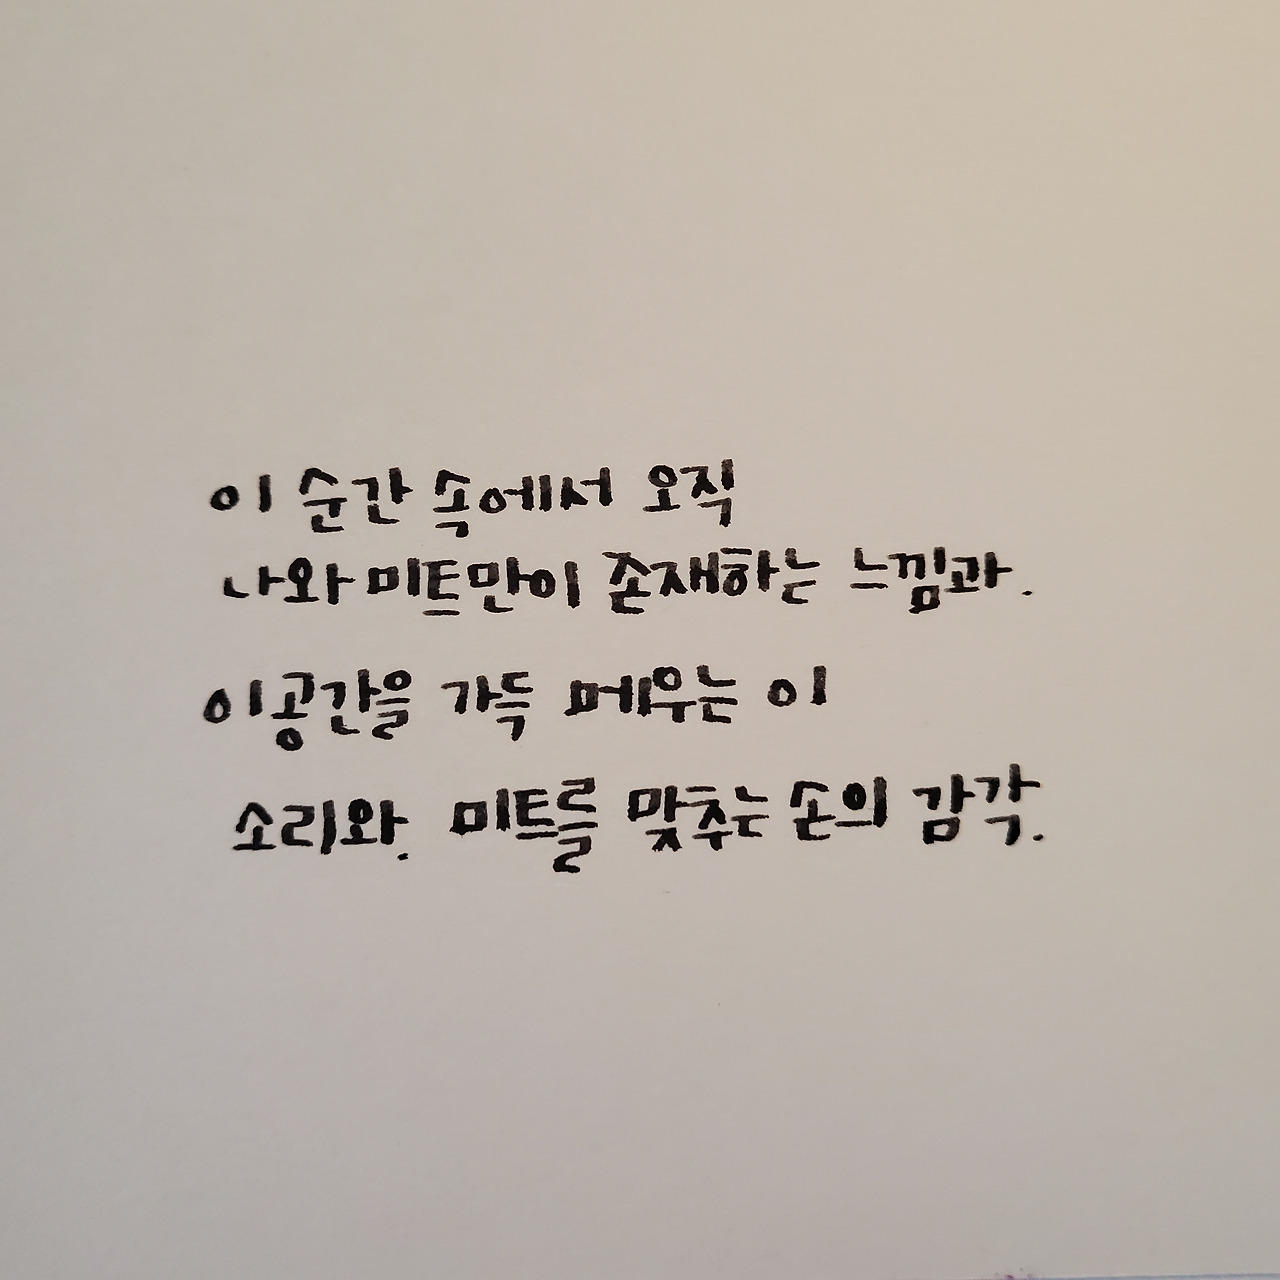 이 순간 속에서 오직
나와 미트만이 존재하는 느낌과.
이공간을 가득 메우는 이
소리와. 미트를 맞추는 손의 감각.